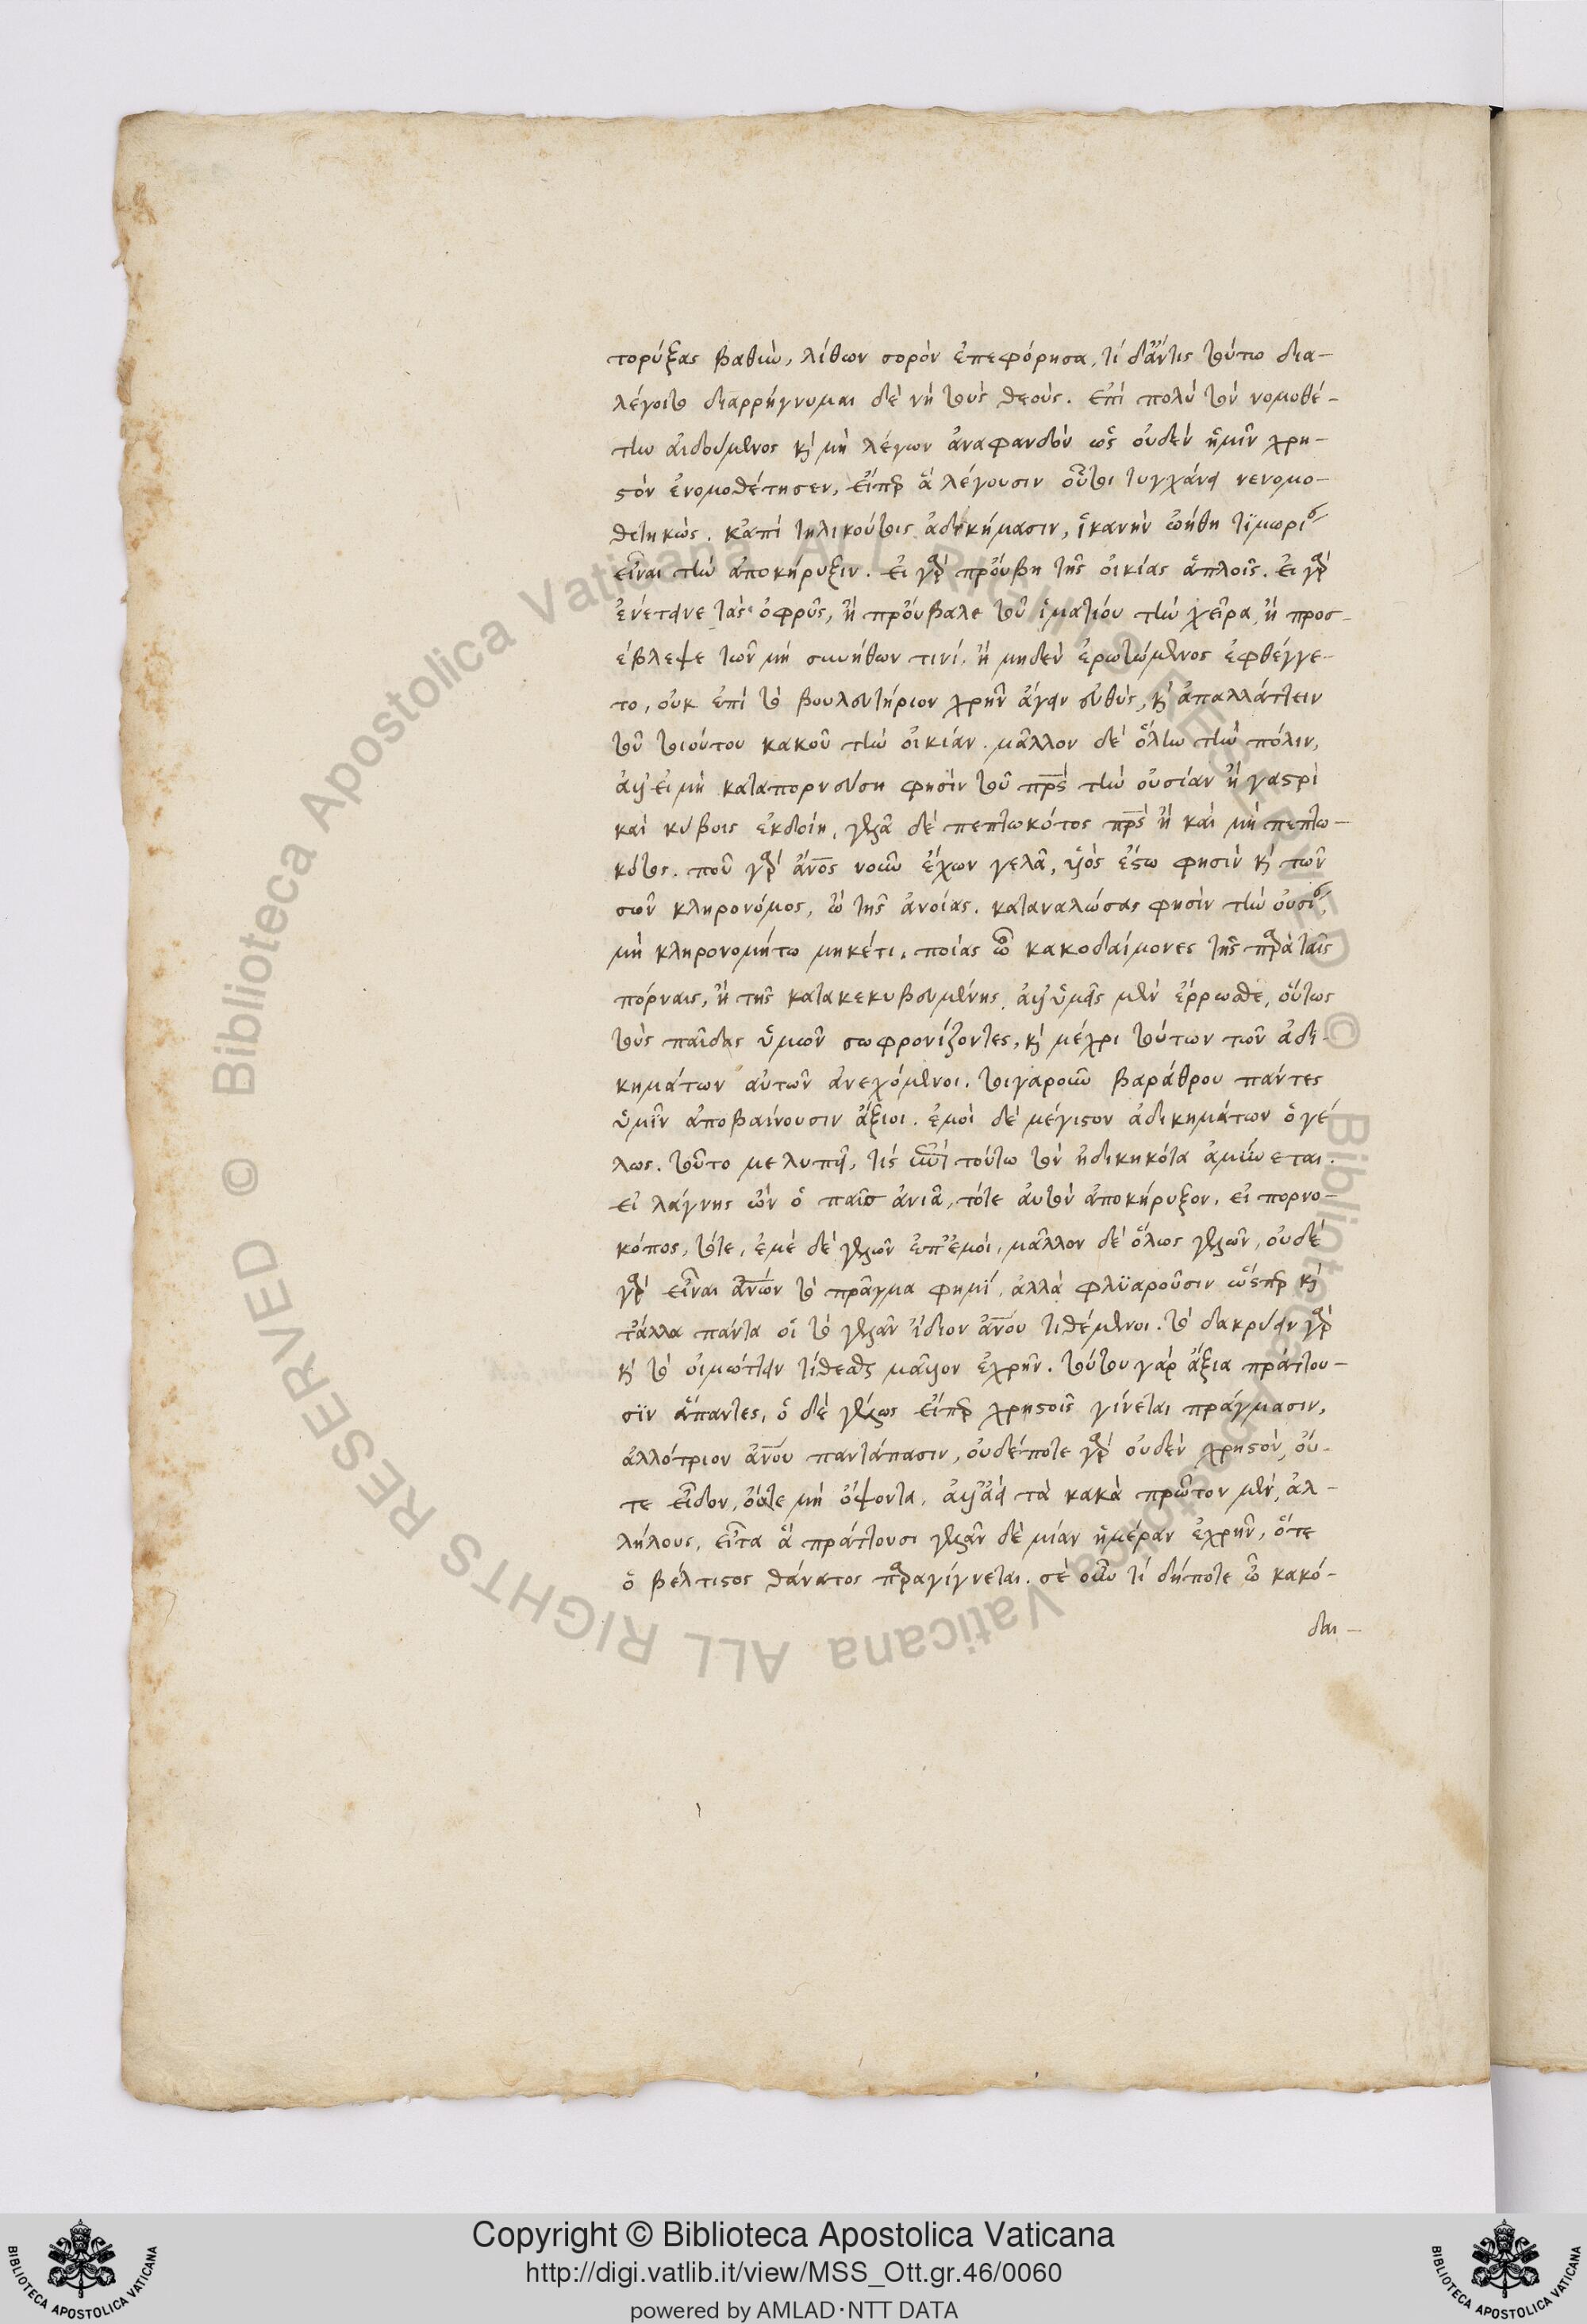 τορύξας βαθὺν, λίθων σορὸν ἐπεφόρησα, τί δ' ἄν τις τούτω δια-
λέγοιτο διαρρήγνυμαι δὲ νὴ τοὺς θεούς. ἐπὶ πολὺ τὸν νομοθέ-
την αἰδούμενος κὶ μὴ λέγων ἀναφανδὸν ὡς οὐδὲν ἡμῖν χρη-
στὸν ἐνομοθέτησεν, εἴπερ ἃ λέγουσιν οὗτοι τυγχάνει νενομο-
θετηκὼς. κἀπὶ τηλικούτοις ἀδικήμασιν, ἱκανὴν ᾠήθη τϊμωρίαν
εἶναι τὴν ἀποκήρυξιν. εἰ γὰρ προύβη τῆς οἰκίας ἁπλοῖς. εἰ γὰρ
ἐνέτεινε τὰς ὀφρῦς, ἢ προύβαλε τοῦ ἱματίου τὴν χεῖρα, ἢ προσ-
έβλεψε τῶν μὴ συνήθων τινί. ἢ μηδὲν ἐρωτώμενος ἐφθέγγε-
το, οὐκ ἐπὶ τὸ βουλευτήριον χρῆν ἄγειν εὐθὺς, κὶ ἀπαλλάττειν
τοῦ τοιούτου κακοῦ τὴν οἰκίαν. μᾶλλον δὲ ὅλην τὴν πόλιν,
ἀλλ' εἰ μὴ καταπορνεύση φησὶν τοῦ πρς τὴν οὐσίαν ἢ γαστρὶ
καὶ κύβοις ἐκδοίη, γελᾶ δὲ πεπτωκότος πρς ἢ καὶ μὴ πεπτω-
κότος. ποῦ γὰρ ἄνος νοῦν ἔχων γελᾶ, ὑὸς ἔστω φησὶν κὶ τῶν
σῶν κληρονόμος, ὢ τῆς ἀνοίας. καταναλώσας φησὶν τὴν οὐσίαν,
μὴ κληρονομήτω μηκέτι. ποίας ὦ κακοδαίμονες τῆς παρὰ ταῖς
πόρναις, ἢ τῆς κατακεκυβευμένης. ἀλλ' ὑμεῖς μὲν ἔρρωσθε, οὕτως
τοὺς παῖδας ὑμῶν σωφρονίζοντες, κὶ μέχρι τούτων τῶν ἀδι-
κημάτων αὐτῶν ἀνεχόμενοι. τοιγαροῦν βαράθρου πάντες
ὑμῖν ἀποβαίνουσιν ἄξιοι. ἐμοὶ δὲ μέγιστον ἀδικημάτων ὁ γέ
λως. τοῦτο με λυπεῖ, τίς τούτω τὸν ἠδικηκότα ἀμύνεται.
εἰ λάγνης ὢν ὁ παῖς ἀνιᾶ, τότε αὐτὸν ἀποκήρυξον, εἰ πορνο-
κόπος, τότε, ἐμὲ δὲ γελῶν ἐπ' ἐμοὶ, μᾶλλον δὲ ὅλως γελῶν, οὐδὲ
γὰρ εἶναι ἀνων τὸ πρᾶγμα φημί. ἀλλὰ φλϋαροῦσιν ὥσπερ κὶ
τἄλλα πάντα οἱ τὸ γελᾶν ἴδιον ἀνου τιθέμενοι. τὸ δακρύειν γὰρ
κὶ τὸ οἰμώττειν τίθεσθαι μᾶλλον ἐχρῆν. τούτου γὰρ ἄξια πράττου-
σϊν ἅπαντες, ὁ δὲ γέλως εἴπερ χρηστοῖς γίνεται πράγμασιν,
ἀλλότριον ἀνου παντάπασιν, οὐδέποτε γὰρ οὐδὲν χρηστὸν, οὔ-
τε εἶδον, οὔτε μὴ ὄψονται, ἀλλ' ἀεὶ τὰ κακὰ πρῶτον μὲν, ἀλ-
λήλους, εἶτα ἃ πράττουσι γελᾶν δὲ μίαν ἡμέραν ἐχρῆν, ὅτε
ὁ βέλτιστος θάνατος παραγίγνεται. σὲ οὖν τί δήποτε ὦ κακό-
δαι-
Copyright © Biblioteca Apostolica Vaticana
http://digi.vatlib.it/view/MSS_Ott.gr.46/0060
powered by AMLAD·NTT DATA
BIBLIOTECA APOSTOLICA VATICANA
BIBLIOTECA APOSTOLICA VATICANA
© Biblioteca Apostolica Vaticana ALL RIGHTS RESERVED
© Biblioteca Apostolica Vaticana ALL RIGHTS RESERVED